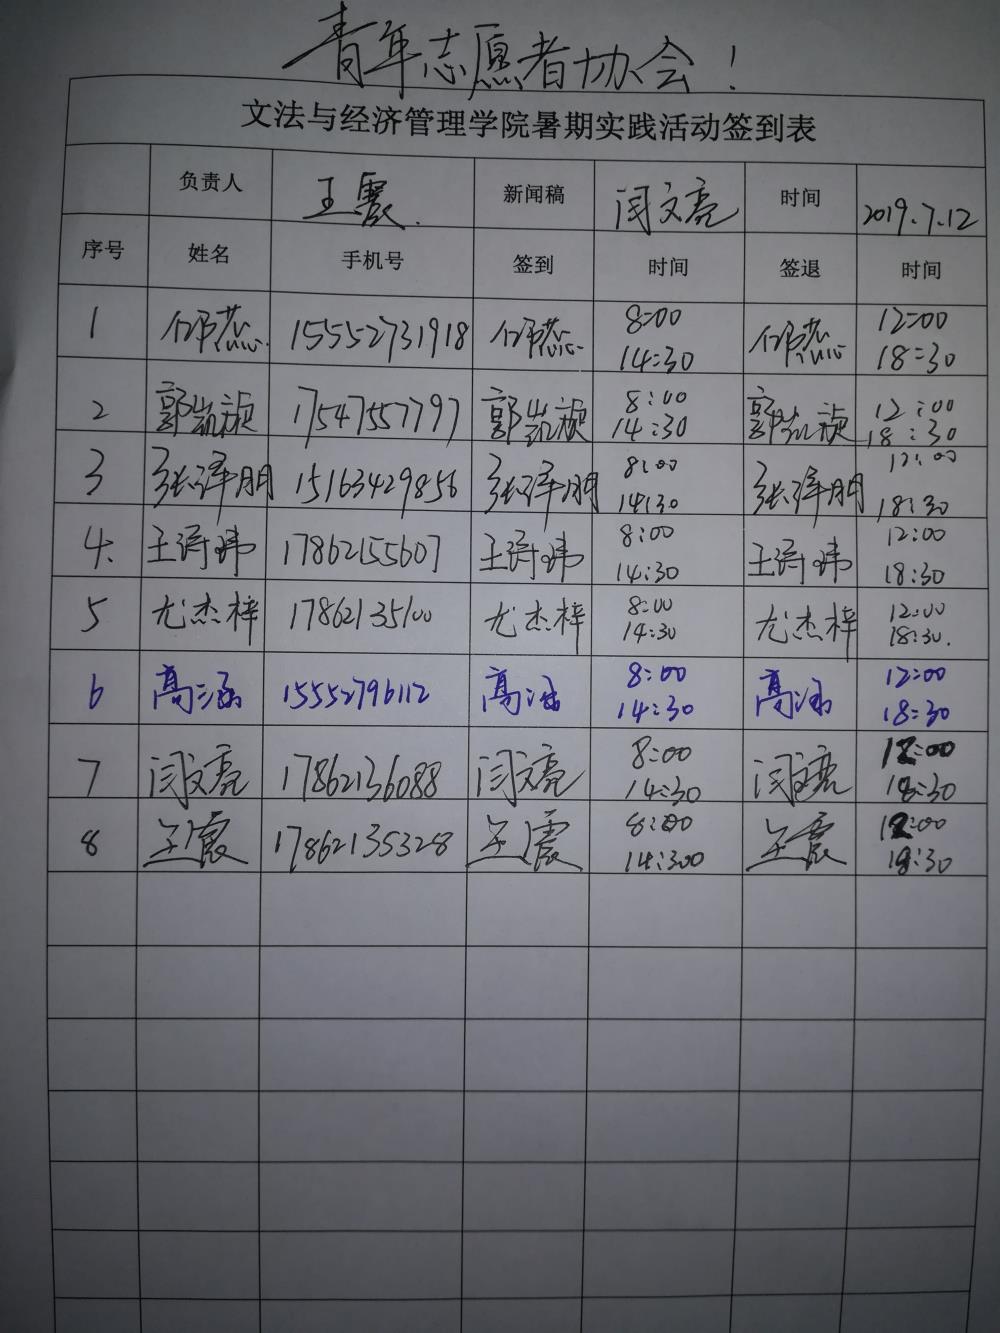 青年志愿者协会！
文法与经济管理学院暑期实践活动签到表
负责人 王震. 新闻稿 闫文亮 时间 2019.7.12
序号 姓名 手机号 签到 时间 签退 时间
1 邹燕 15552731918 邹燕 8:00 14:30 邹燕 12:00 18:30
2 郭凯祯 17547557797 郭凯祯 8:00 14:30 郭凯祯 12:00 18:30
3 张泽朋 15163429856 张泽朋 8:00 14:30 张泽朋 12:00 18:30
4. 王涛玮 17862155607 王涛玮 8:00 14:30 王涛玮 12:00 18:30
5 尤杰梓 17862135100 尤杰梓 8:00 14:30 尤杰梓 12:00 18:30.
6 高涵 15552796112 高涵 8:00 14:30 高涵 12:00 18:30
7 闫文亮 17862136088 闫文亮 8:00 14:30 闫文亮 12:00 18:30
8 王震 17862135328 王震 8:00 14:300 王震 12:00 18:30